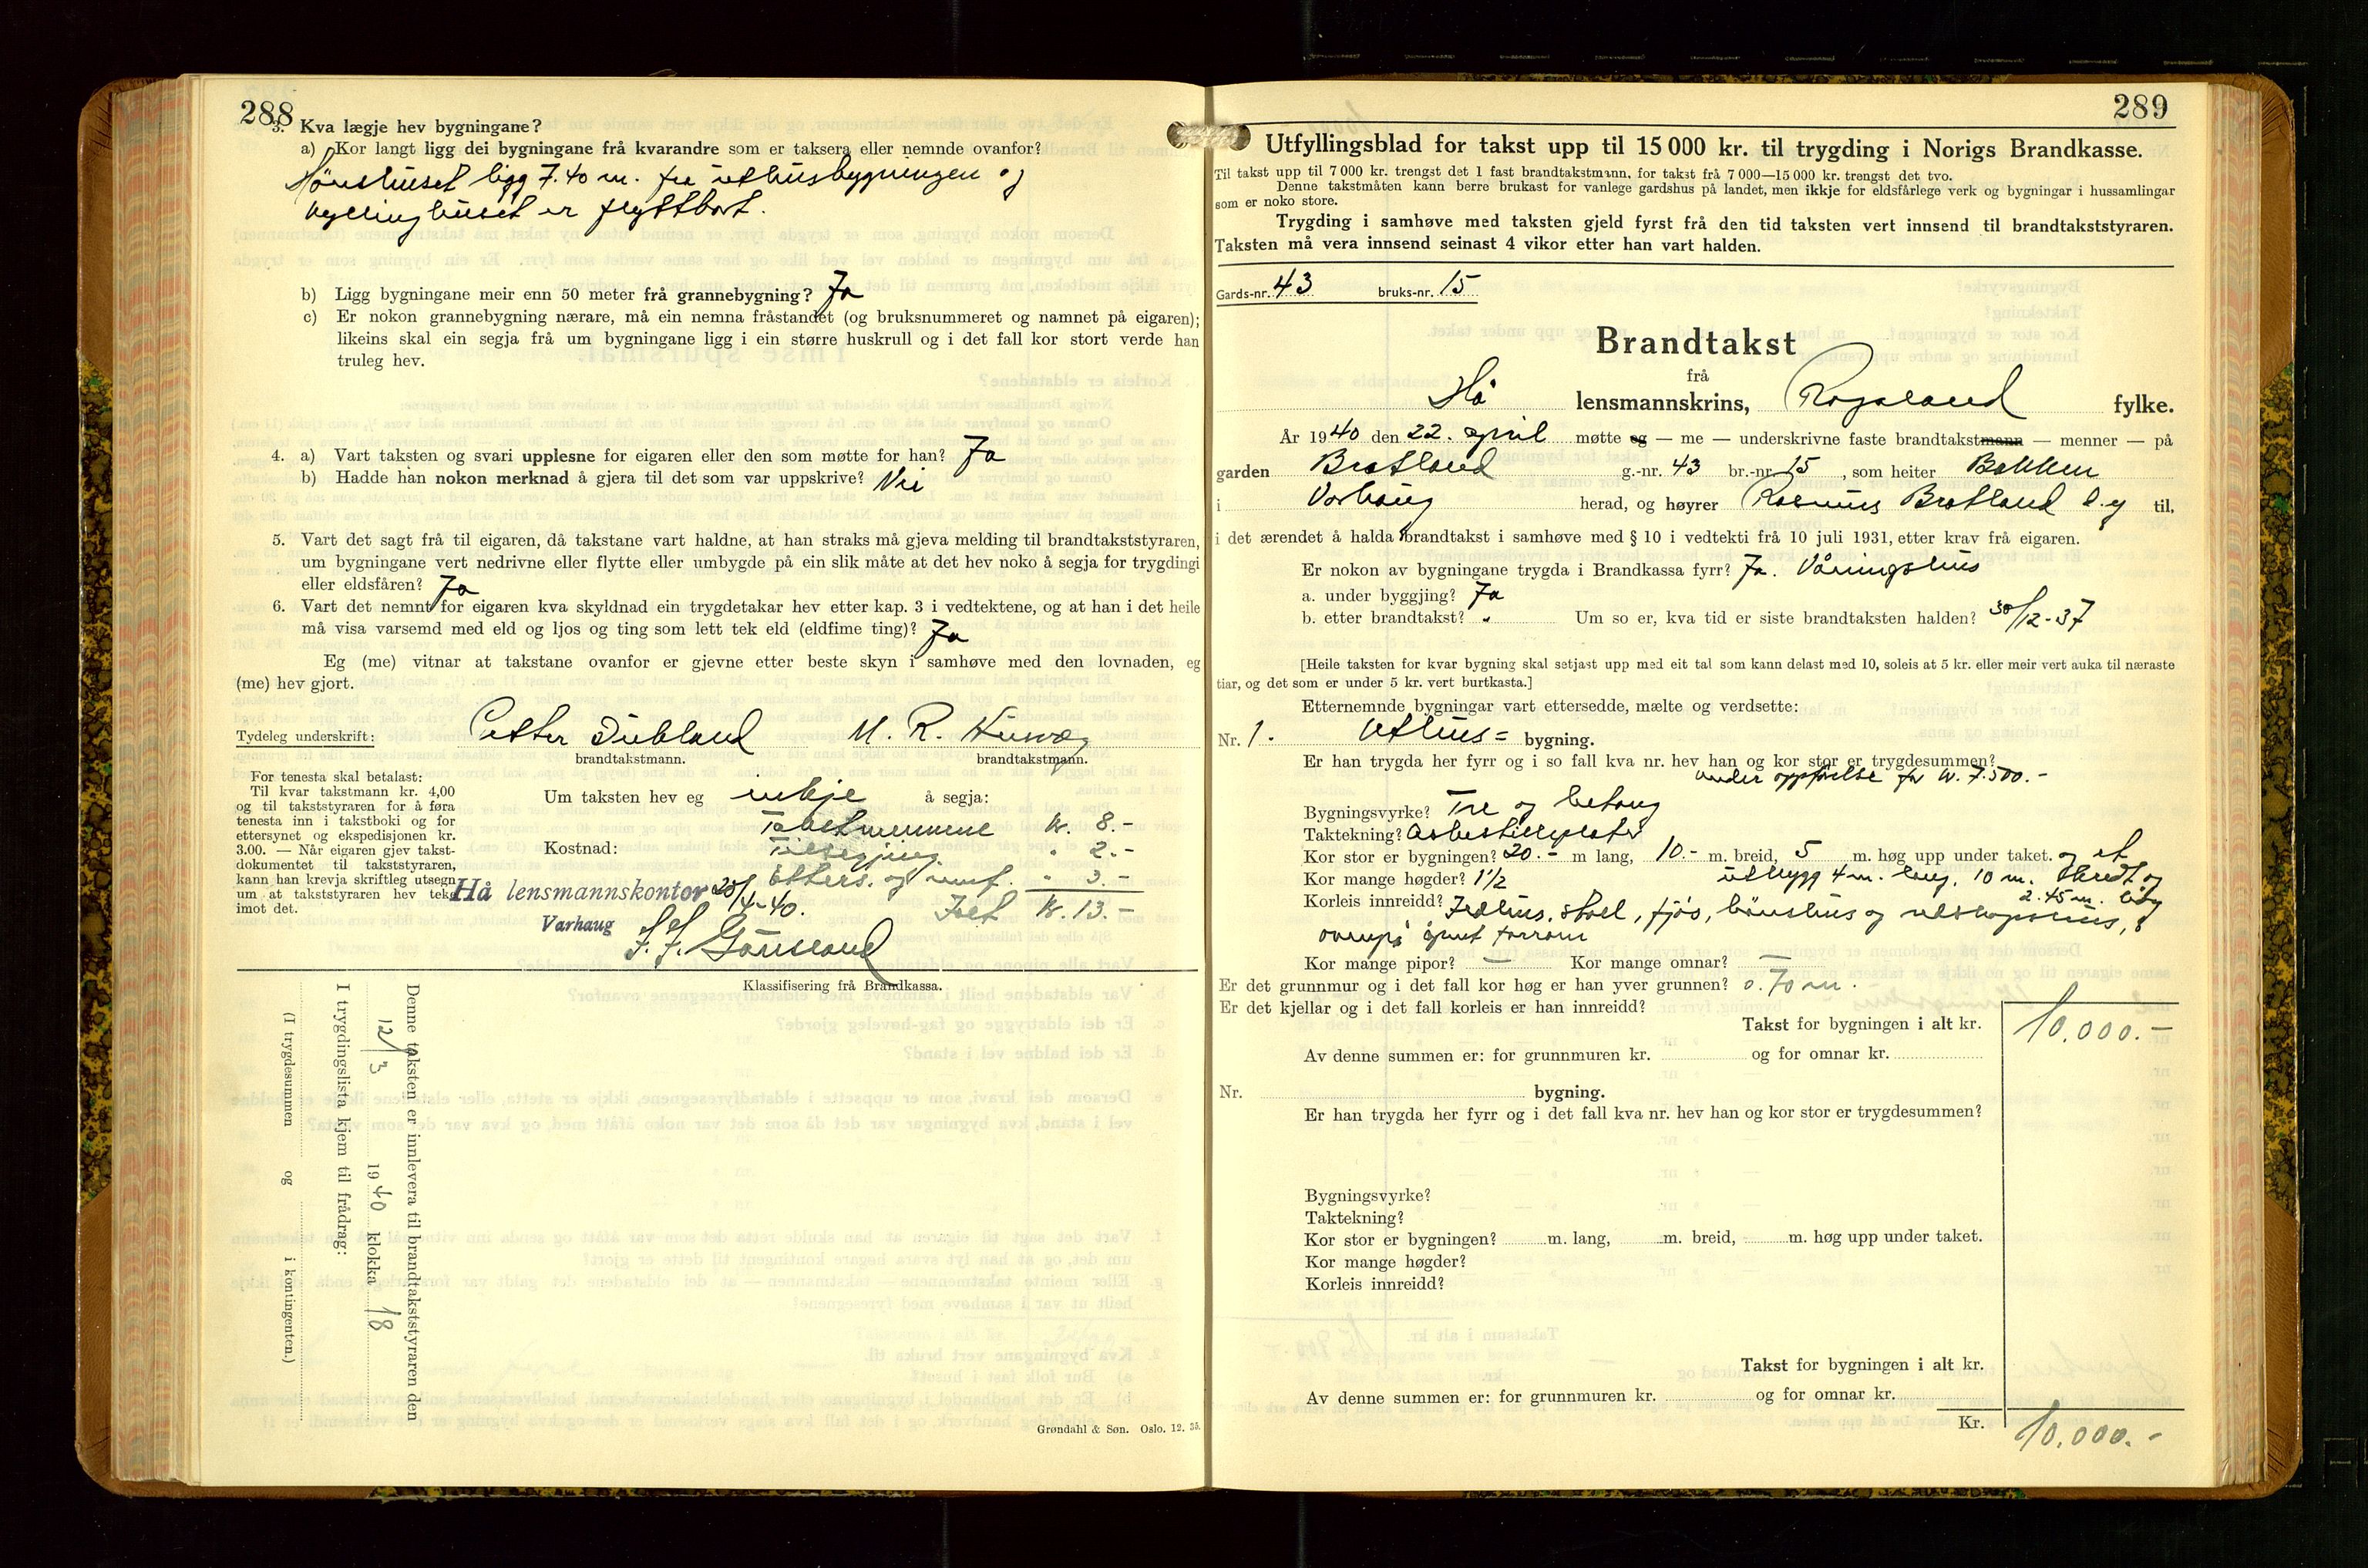 288
3. Kva lægje hev bygningane?
a) Kor langt ligg dei bygningane frå kvarandre som er taksera eller nemnde ovanfor?
Hönshuset ligg 7.40 m. fra uthusbygningen og
kyllinghuset er flyttbart.
b) Ligg bygningane meir enn 50 meter frå grannebygning? Ja
c) Er nokon grannebygning nærare, må ein nemna fråstandet (og bruksnummeret og namnet på eigaren);
likeins skal ein segja frå um bygningane ligg i ein større huskrull og i det fall kor stort verde han
truleg hev.
4. a) Vart taksten og svari upplesne for eigaren eller den som møtte for han? Ja
b) Hadde han nokon merknad å gjera til det som var uppskrive? Nei
5. Vart det sagt frå til eigaren, då takstane vart haldne, at han straks må gjeva melding til brandtakststyraren,
um bygningane vert nedrivne eller flytte eller umbygde på ein slik måte at det hev noko å segja for trygdingi
eller eldsfåren? Ja
6. Vart det nemnt for eigaren kva skyldnad ein trygdetakar hev etter kap. 3 i vedtektene, og at han i det heile
må visa varsemd med eld og ljos og ting som lett tek eld (eldfime ting)? Ja
Eg (me) vitnar at takstane ovanfor er gjevne etter beste skyn i samhøve med den lovnaden, eg
(me) hev gjort.
Tydeleg underskrift: Petter Dubland M. R.
brandtakstmann. brandtakstmann.
For tenesta skal betalast:
Til kvar takstmann kr. 4,00
og til takststyraren for å føra
tenesta inn i takstboki og for
ettersynet og ekspedisjonen kr.
3.00. — Når eigaren gjev takst-
dokumentet til takststyraren,
kann han krevja skriftleg utsegn
um at takststyraren hev teke
imot det.
Um taksten hev eg inkje å segja:
Kostnad: Takstmennene kr. 8.-
Tilsegjing " 2.-
Etters. og innf. " 3.-
Ialt kr. 13.-
Hå lensmannskontor 25/4-40.
Varhaug
Klassifisering frå Brandkassa.
Denne taksten er innlevera til brandtakststyraren den
12/3 1940 klokka 18
I trygdingslista kjem til frådrag:
(I trygdesummen og i kontingenten.)
Grøndahl & Søn. Oslo. 12. 35.
289
Utfyllingsblad for takst upp til 15 000 kr. til trygding i Norigs Brandkasse.
Til takst upp til 7 000 kr. trengst det 1 fast brandtakstmann, for takst frå 7 000—15 000 kr. trengst det tvo.
Denne takstmåten kann berre brukast for vanlege gardshus på landet, men ikkje for eldsfårlege verk og bygningar i hussamlingar
som er noko store.
Trygding i samhøve med taksten gjeld fyrst frå den tid taksten vert innsend til brandtakststyraren.
Taksten må vera innsend seinast 4 vikor etter han vart halden.
Gards-nr. 43 bruks-nr. 15
Brandtakst
frå
Hå lensmannskrins, Rogaland fylke.
År 1940 den 22. april møtte eg — me — underskrivne faste brandtakstmann — menner — på
garden Bratland g.-nr. 43 br.-nr. 15, som heiter Bakken
i Varhaug herad, og høyrer Rasmus Bratland d.y til,
i det ærendet å halda brandtakst i samhøve med § 10 i vedtekti frå 10 juli 1931, etter krav frå eigaren.
Er nokon av bygningane trygda i Brandkassa fyrr? Ja. Våningshus
a. under byggjing? Ja
b. etter brandtakst? " Um so er, kva tid er siste brandtaksten halden? 30/12-37
[Heile taksten for kvar bygning skal setjast upp med eit tal som kann delast med 10, soleis at 5 kr. eller meir vert auka til næraste
tiar, og det som er under 5 kr. vert burtkasta.]
Etternemnde bygningar vart ettersedde, mælte og verdsette:
Nr. 1. Uthus= bygning.
Er han trygda her fyrr og i so fall kva nr. hev han og kor stor er trygdesummen?
under oppförelse for kr. 7.500.-
Bygningsvyrke? Tre og betong
Taktekning? Asbestsillplater
Kor stor er bygningen? 20.- m lang, 10.- m. breid, 5 m. høg upp under taket. og et
Kor mange høgder? 1½ utbygg 4 m. lang, 10 m. bredt og
2.45 m. höy
Korleis innreidd? Fedhus, stall, fjös, hönshus og redskapshus,
Kor mange pipor? — Kor mange omnar? —
Er det grunnmur og i det fall kor høg er han yver grunnen? 0.70 m.
Er det kjellar og i det fall korleis er han innreidd?
Takst for bygningen i alt kr. 10.000.-
Av denne summen er: for grunnmuren kr. og for omnar kr.
Nr. bygning.
Er han trygda her fyrr og i det fall kva nr. hev han og kor stor er trygdesummen?
Bygningsvyrke?
Taktekning?
Kor stor er bygningen? m. lang, m. breid, m. høg upp under taket.
Kor mange høgder?
Korleis innreidd?
Takst for bygningen i alt kr.
Av denne summen er: for grunnmuren kr. og for omnar kr.
Kr. 10.000.-